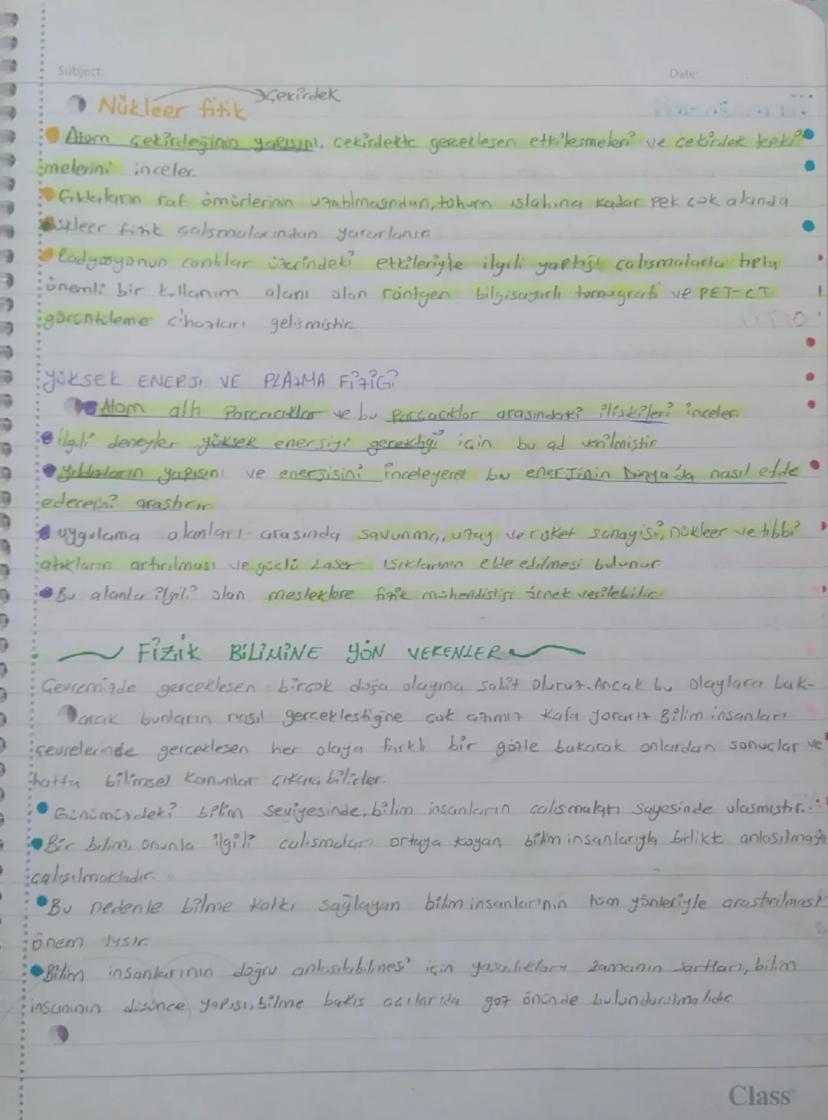 Subject: Date:
Çekirdek
Nükleer fizik
Atom çekirdeğinin yapısını, çekirdekte gerçekleşen etkileşmeleri ve çekirdek
melerini inceler
Gıdaların raf ömürlerinin uzatılmasından, tohum ıslahına kadar pek çok alanda
nükleer fizik çalışmalarından yararlanır
Radyosyonun canlılar üzerindeki etkileriyle ilgili yaptığı çalışmalarla
önemli bir kullanım alanı olan röntgen bilgisayarlı tomografi ve PET-CT
görüntüleme cihazları gelişmiştir
YÜKSEK ENERJİ VE PLAZMA FİZİĞİ
Atom altı Parçacıklar ve bu parçacıklar arasındaki ilişkileri inceler.
ilgili deneyler yüksek enerjiyi gerektiği için bu ad verilmiştir
Yıldızların yapısını ve enerjisini inceleyerek bu enerjinin Dünya'da nasıl elde
edeceğini araştırır
uygulama alanları arasında savunma, uzay ve roket sanayisi, nükleer ve tıbbi
atıkların artırılması ve güçlü Lazer ışıklarının elde edilmesi bulunur
Bu alanla ilgili olan mesleklere fizik mühendisliği örnek verilebilir
FİZİK BİLİMİNE YÖN VERENLER
Çevremizde gerçekleşen birçok doğa olayına şahit oluruz. Ancak bu olaylara bak-
arak bunların nasıl gerçekleştiğne çok azımız kafa yorarız Bilim insanları
çevrelerinde gerçekleşen her olaya farklı bir gözle bakarak onlardan sonuçlar ve
hatta bilimsel kanunlar çıkarabilirler.
Günümizdeki bilim seviyesinde, bilim insanların çalışmaları sayesinde ulaşmıştır.
Bir bilim, onunla ilgili çalışmaları ortaya koyan bilim insanlarıyla birlikt anlaşılmaya
çalışılmaktadır.
Bu nedenle bilme katkı sağlayan bilim insanlarının tüm yönleriyle araştırılması
önem taşır
Bilim insanlarının doğru anlaşılabilmesi için yaşadıkları zamanın şartları, bilim
insanının düşünce yapısı, bilme bakış açılarıda göz önünde bulundurulmalıdır
Class